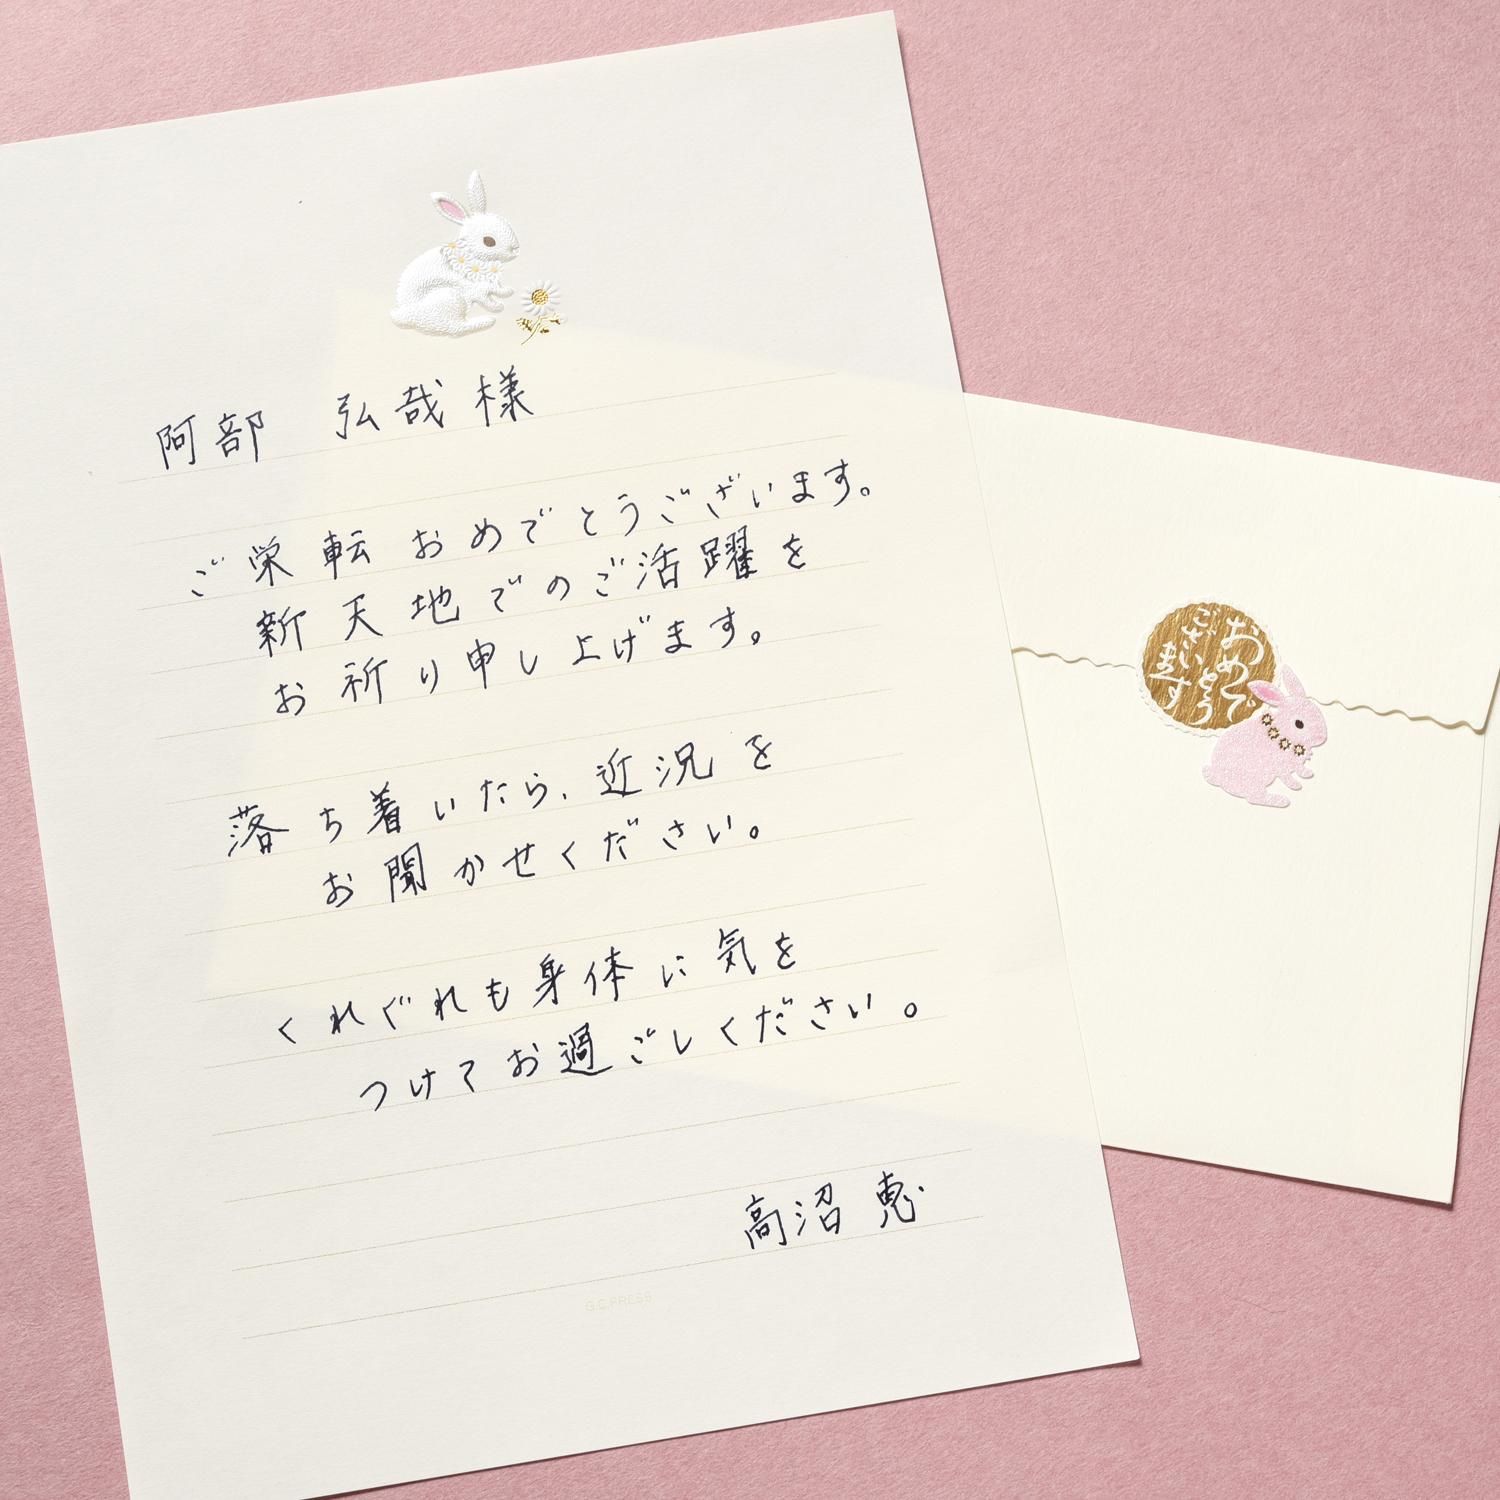 阿部 弘哉 様
ご栄転おめでとうございます。
新天地でのご活躍を
お祈り申し上げます。
落ち着いたら、近況を
お聞かせください。
くれぐれも身体に気を
つけてお過ごしください。
高沼 恵
G.C.PRESS
おめで
とう
ござい
ます